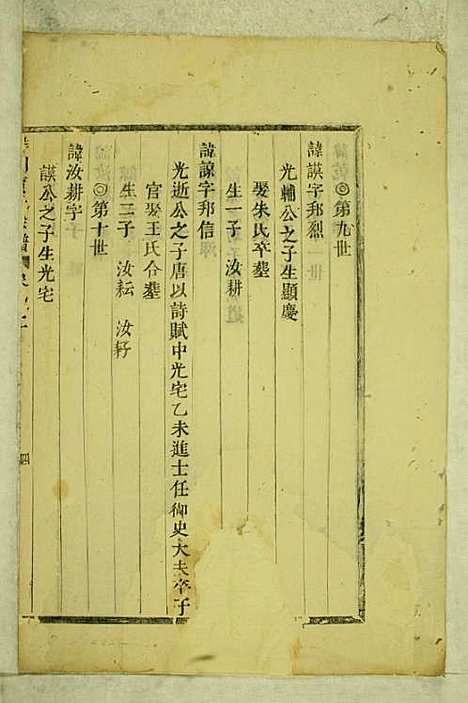 ◎第九世
諱謨字邦烈
光輔公之子生顯慶
娶朱氏卒塟
生一子 汝耕
諱諒字邦信
光逝公之子唐以詩賦中光宅乙未進士任御史大夫卒于
官娶王氏合塟
生二子 汝耘 汝耔
◎第十世
諱汝耕字
謨公之子生光宅
四